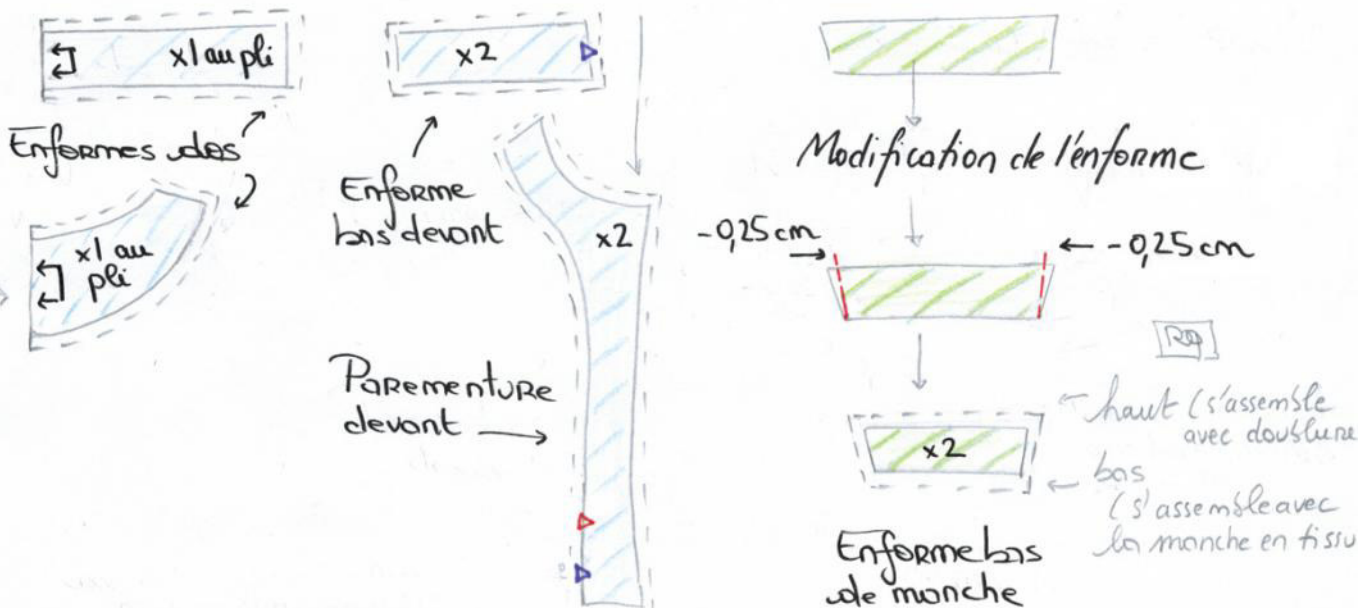 x1 au pli
Enformes dos
x1 au
pli
x2
Enforme
bas devant
x2
Parementure
devant
Modification de l'enforme
-0,25cm
-0,25cm
Rq
haut (s'assemble
avec doublure
x2
bas
(s'assemble avec
la manche en tissu
Enforme bas
de manche